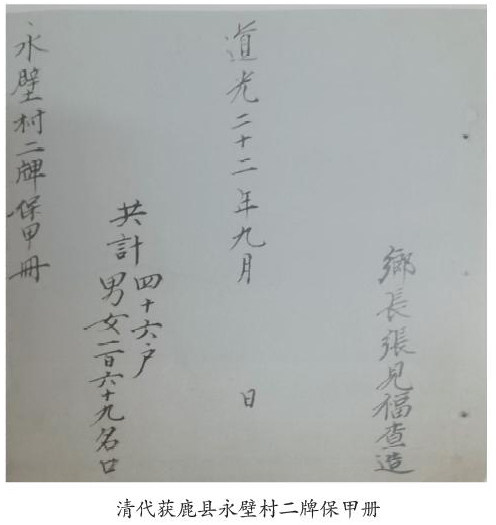 鄉長張見福查造
道光二十二年九月 日
共計
四十六户
男女二百六十九名口
永壁村二牌保甲冊
清代获鹿县永壁村二牌保甲册